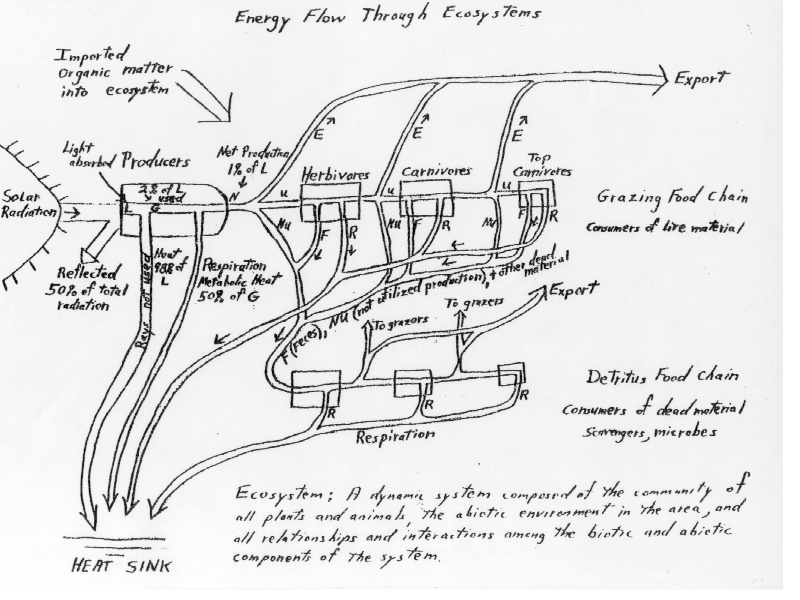 Energy Flow Through Ecosystems
Imported
Organic matter
into ecosystem
Export
E
E
E
Light
absorbed
Producers
Net Production
1% of L
Herbivores
Carnivores
Top
Carnivores
Solar
Radiation
L
2% of L
used
G
N
u
u
u
Grazing Food Chain
Consumers of live material
Nu
F
R
Nu
F
R
Nu
F
R
Reflected
50% of total
radiation
Rays not used
Heat
98% of
L
Respiration
Metabolic Heat
50% of G
F (Feces), NU (not utilized production), + other dead
material
To grazors
To grazers
Export
R
R
R
Respiration
Detritus Food Chain
Consumers of dead material
Scavengers, microbes
Ecosystem; A dynamic system composed of the community of
all plants and animals, the abiotic environment in the area, and
all relationships and interactions among the biotic and abiotic
components of the system.
HEAT SINK